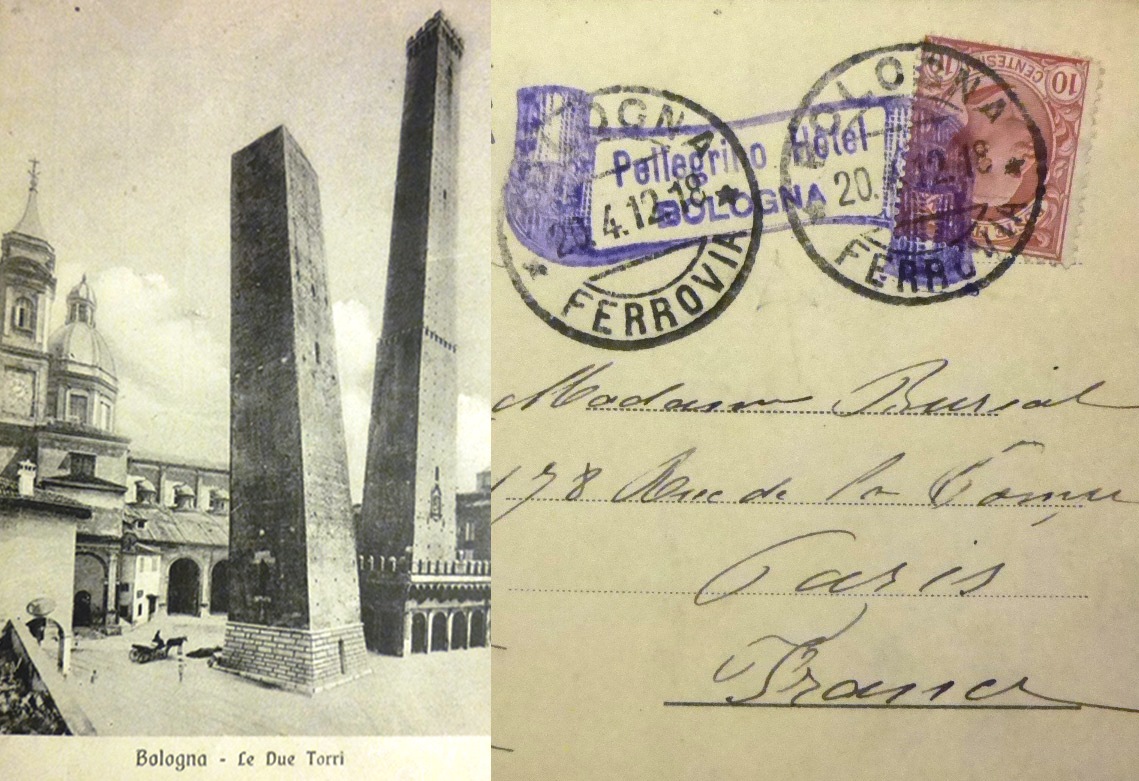 Bologna - Le Due Torri
BOLOGNA
20.4.12.18
FERROVIA
Pellegrino Hotel
BOLOGNA
BOLOGNA
20. 12.18
FERROVIA
10
CENTESI
Madame
178 Rue de la
Paris
France